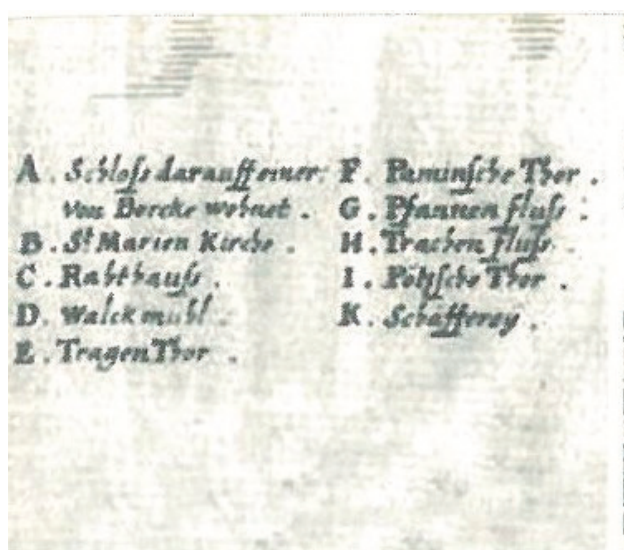 A. Schloss darauff einer
von Borcke wohnet.
B. St Marien Kirche.
C. Rahthauss.
D. Walckmühl.
E. TragenThor.
F. Paminsche Thor.
G. Pfannen fluss:
H. Trachen fluss.
I. Pöltsche Thor.
K. Schafferey.